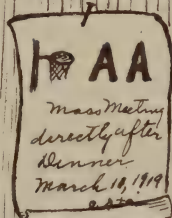 AA
Mass Meeting
directly after
Dinner
March 10, 1919